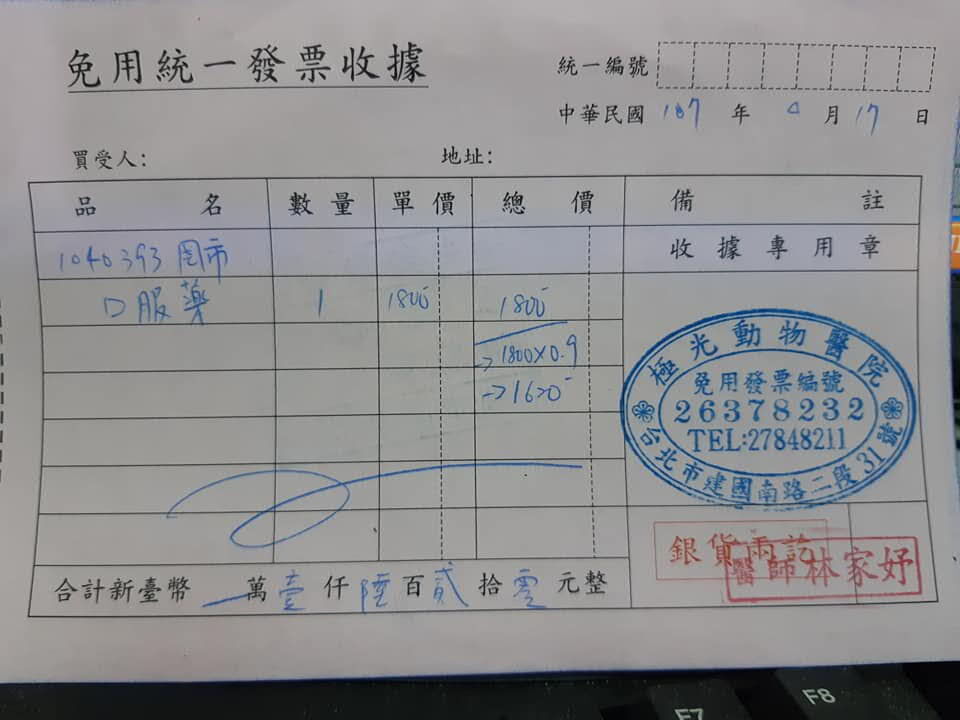 免用統一發票收據
統一編號
中華民國 107 年 月 17 日
買受人: 地址:
品名 數量 單價 總價 備註
1040393 收據專用章
口服藥 1 1800 1800
→1800×0.9
→1620
極光動物醫院
免用發票編號
26378232
TEL:27848211
台北市建國南路二段31號
銀貨兩訖
醫師林家妤
合計新臺幣 萬壹仟陸百貳拾零元整
F7 F8